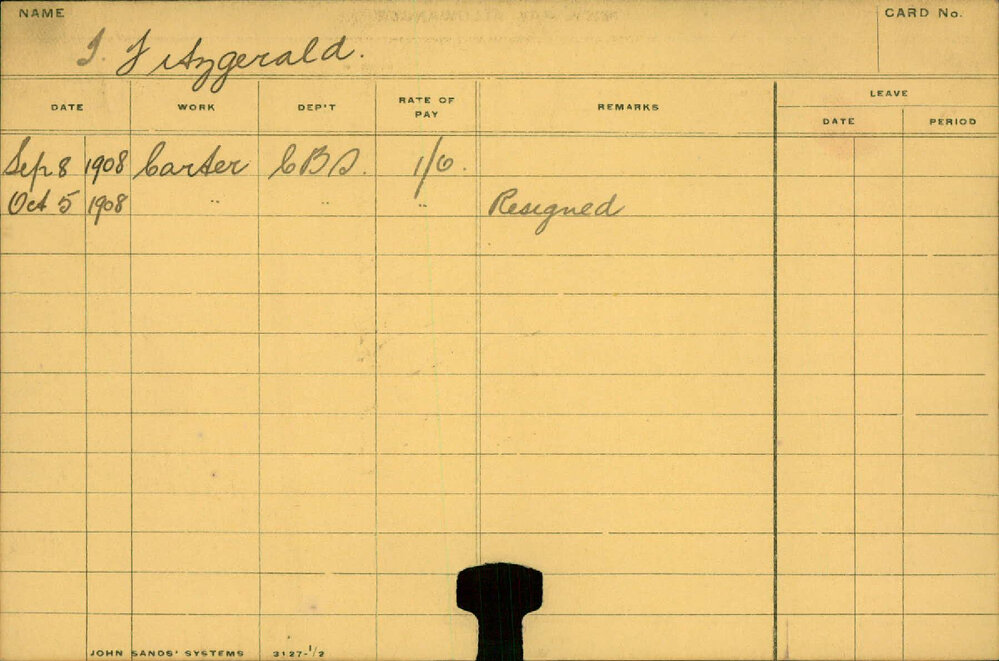 NAME
CARD No.
J. Fitzgerald.
DATE WORK DEP'T RATE OF PAY REMARKS LEAVE
DATE PERIOD
Sep 8 1908 Carter CBS. 1/0.
Oct 5 1908 " " " Resigned
JOHN SANDS' SYSTEMS 3127-1/2